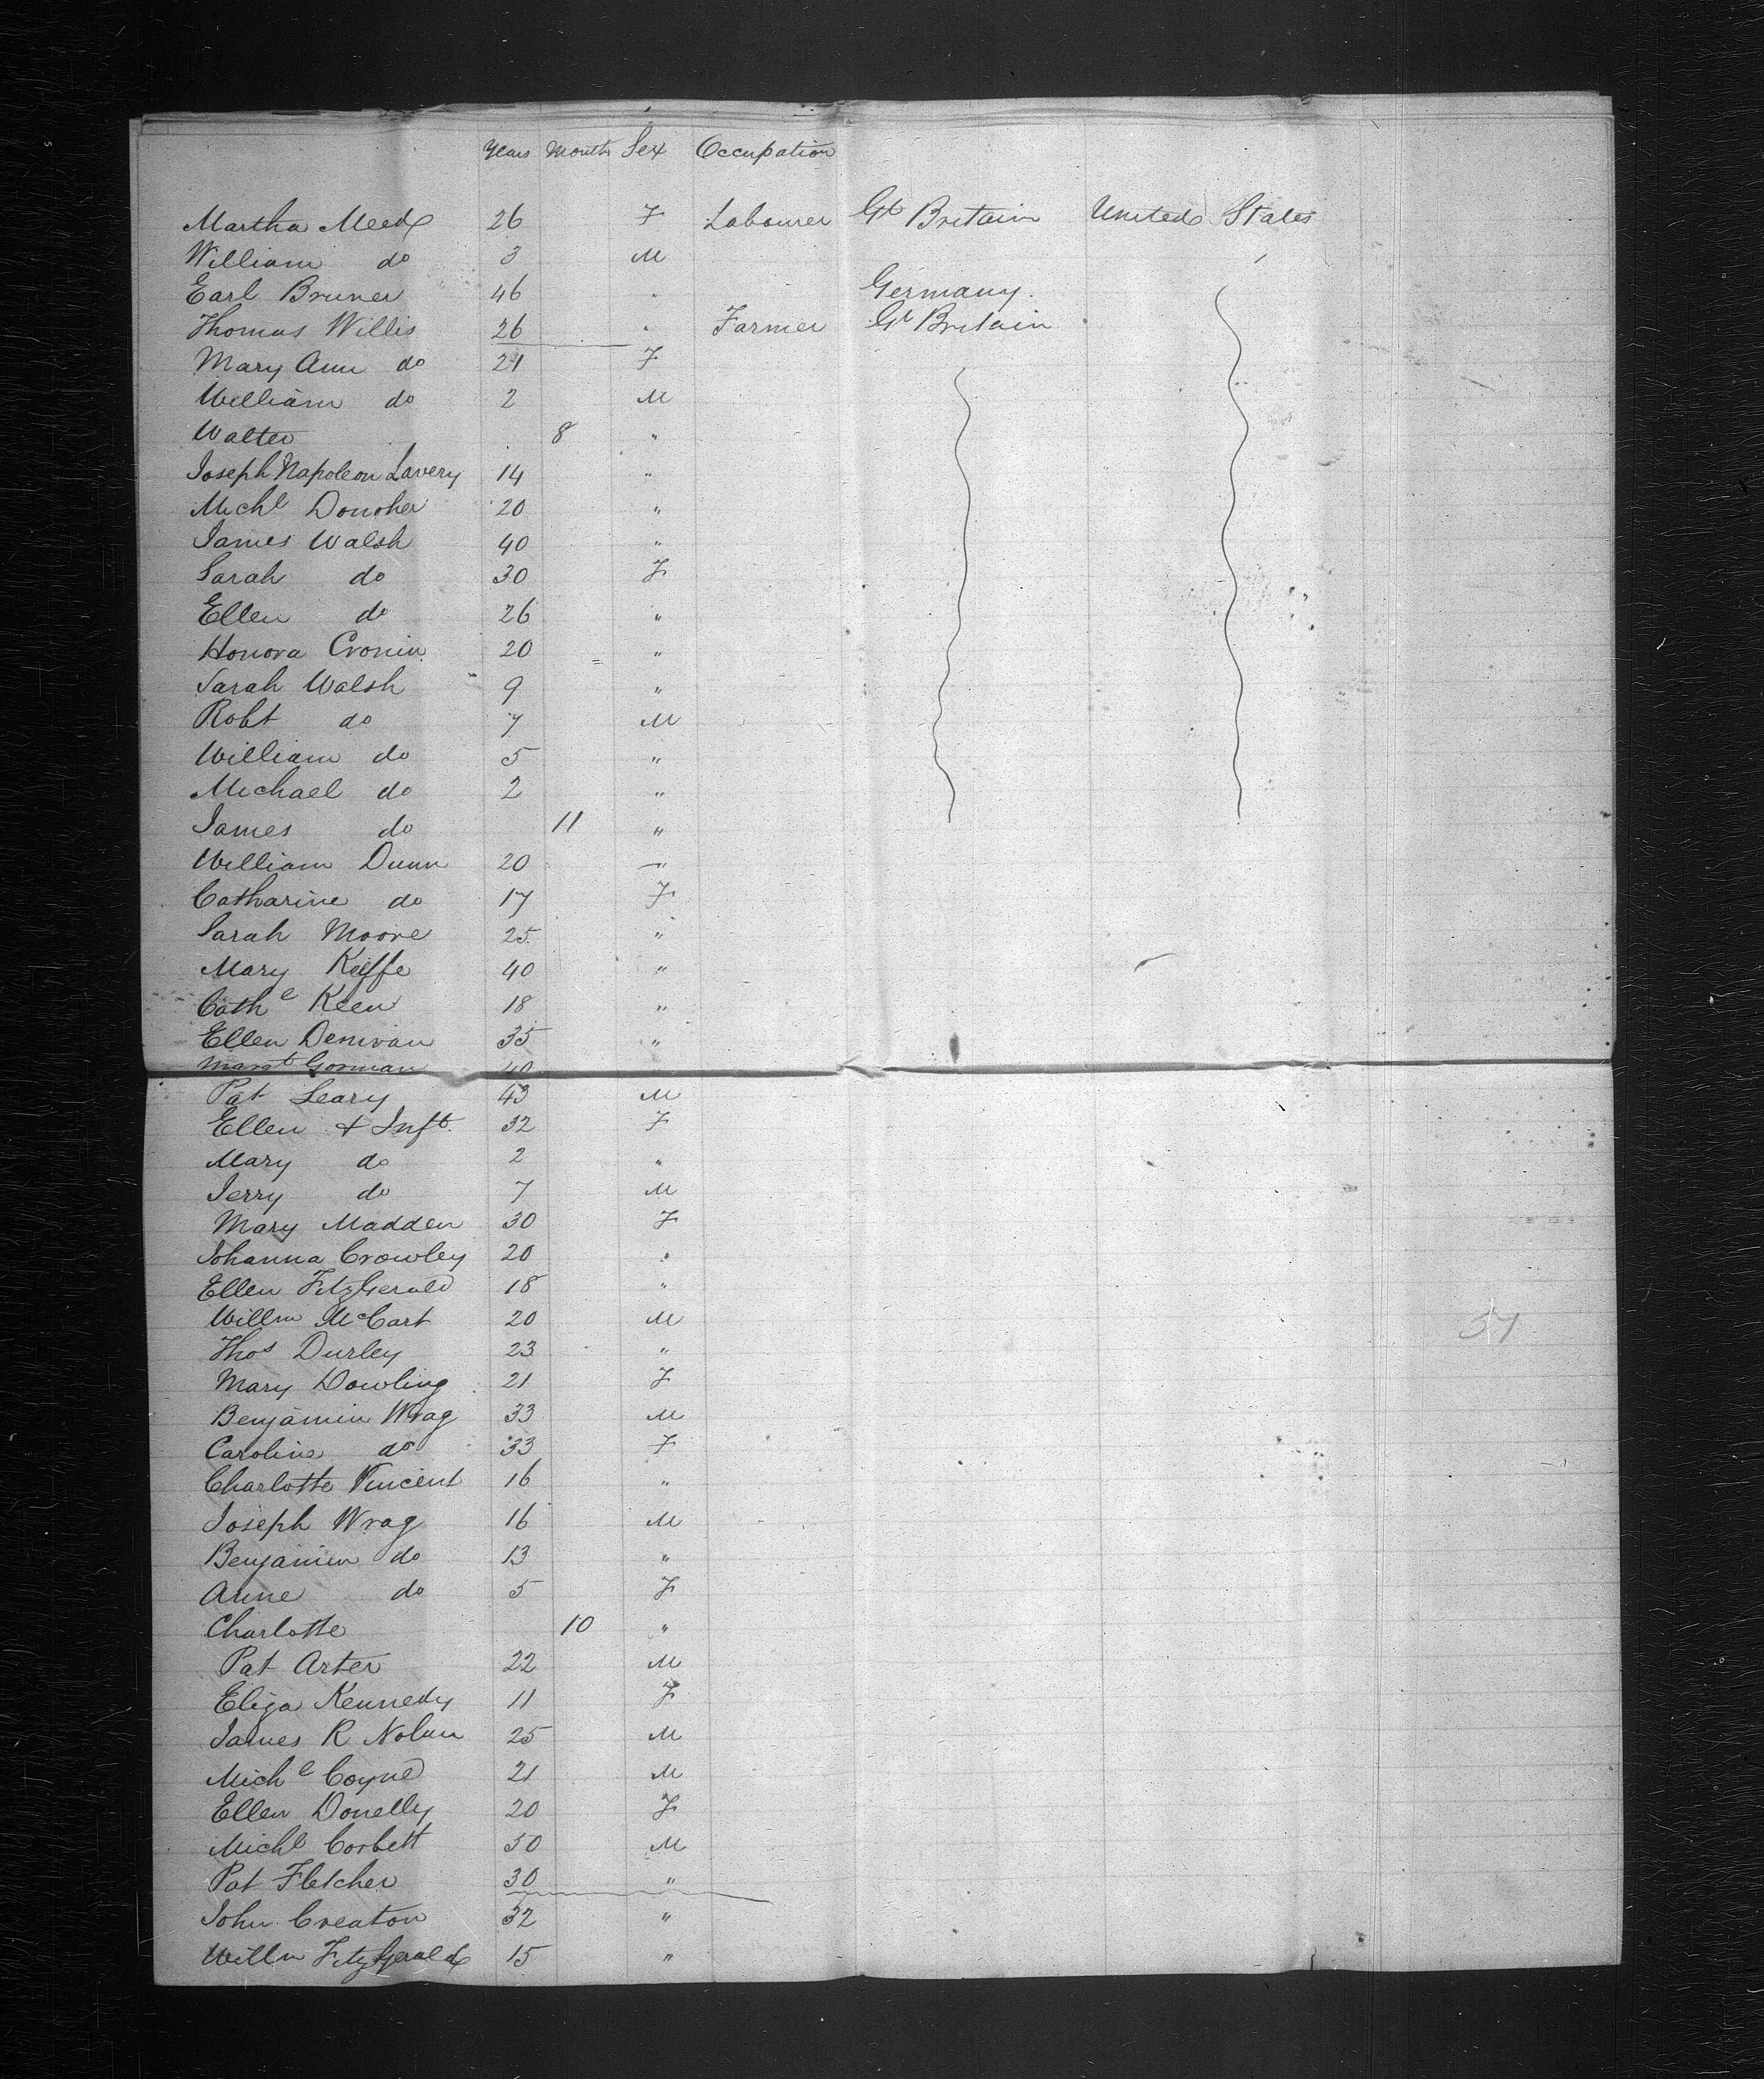 Years Months Sex Occupation
Martha Meed 26 F Labourer Gt Britain United States
William do 3 M
Earl Bruner 46 " Germany.
Thomas Willis 26 " Farmer Gt Britain
Mary Ann do 21 F
William do 2 M
Walter 8 "
Joseph Napoleon Lavery 14 "
Michl Donoher 20 "
James Walsh 40 "
Sarah do 30 F
Ellen do 26 "
Honora Cronin 20 "
Sarah Walsh 9 "
Robt do 7 M
William do 5 "
Michael do 2 "
James do 11 "
William Dunn 20 "
Catharine do 17 F
Sarah Moore 25 "
Mary Keffe 40 "
Cathe Keen 18 "
Ellen Denivan 35 "
Margt Gorman 40
Pat Leary 43 M
Ellen & Inft. 32 F
Mary do 2 "
Jerry do 7 M
Mary Madden 30 F
Johanna Crowley 20 "
Ellen FitzGerald 18 "
Willm McCart 20 M
Thos Durley 23 "
Mary Dowling 21 F
Benjamin Wrag 33 M
Caroline do 33 F
Charlotte Vincent 16 "
Joseph Wrag 16 M
Benjamin do 13 "
Anne do 5 F
Charlotte 10 "
Pat Arter 22 M
Eliza Kennedy 11 F
James R Nolan 25 M
Miche Coyne 21 M
Ellen Donelly 20 F
Michl Corbett 50 M
Pat Fletcher 30 "
John Creaton 32 "
Willm FitzGerald 15 "